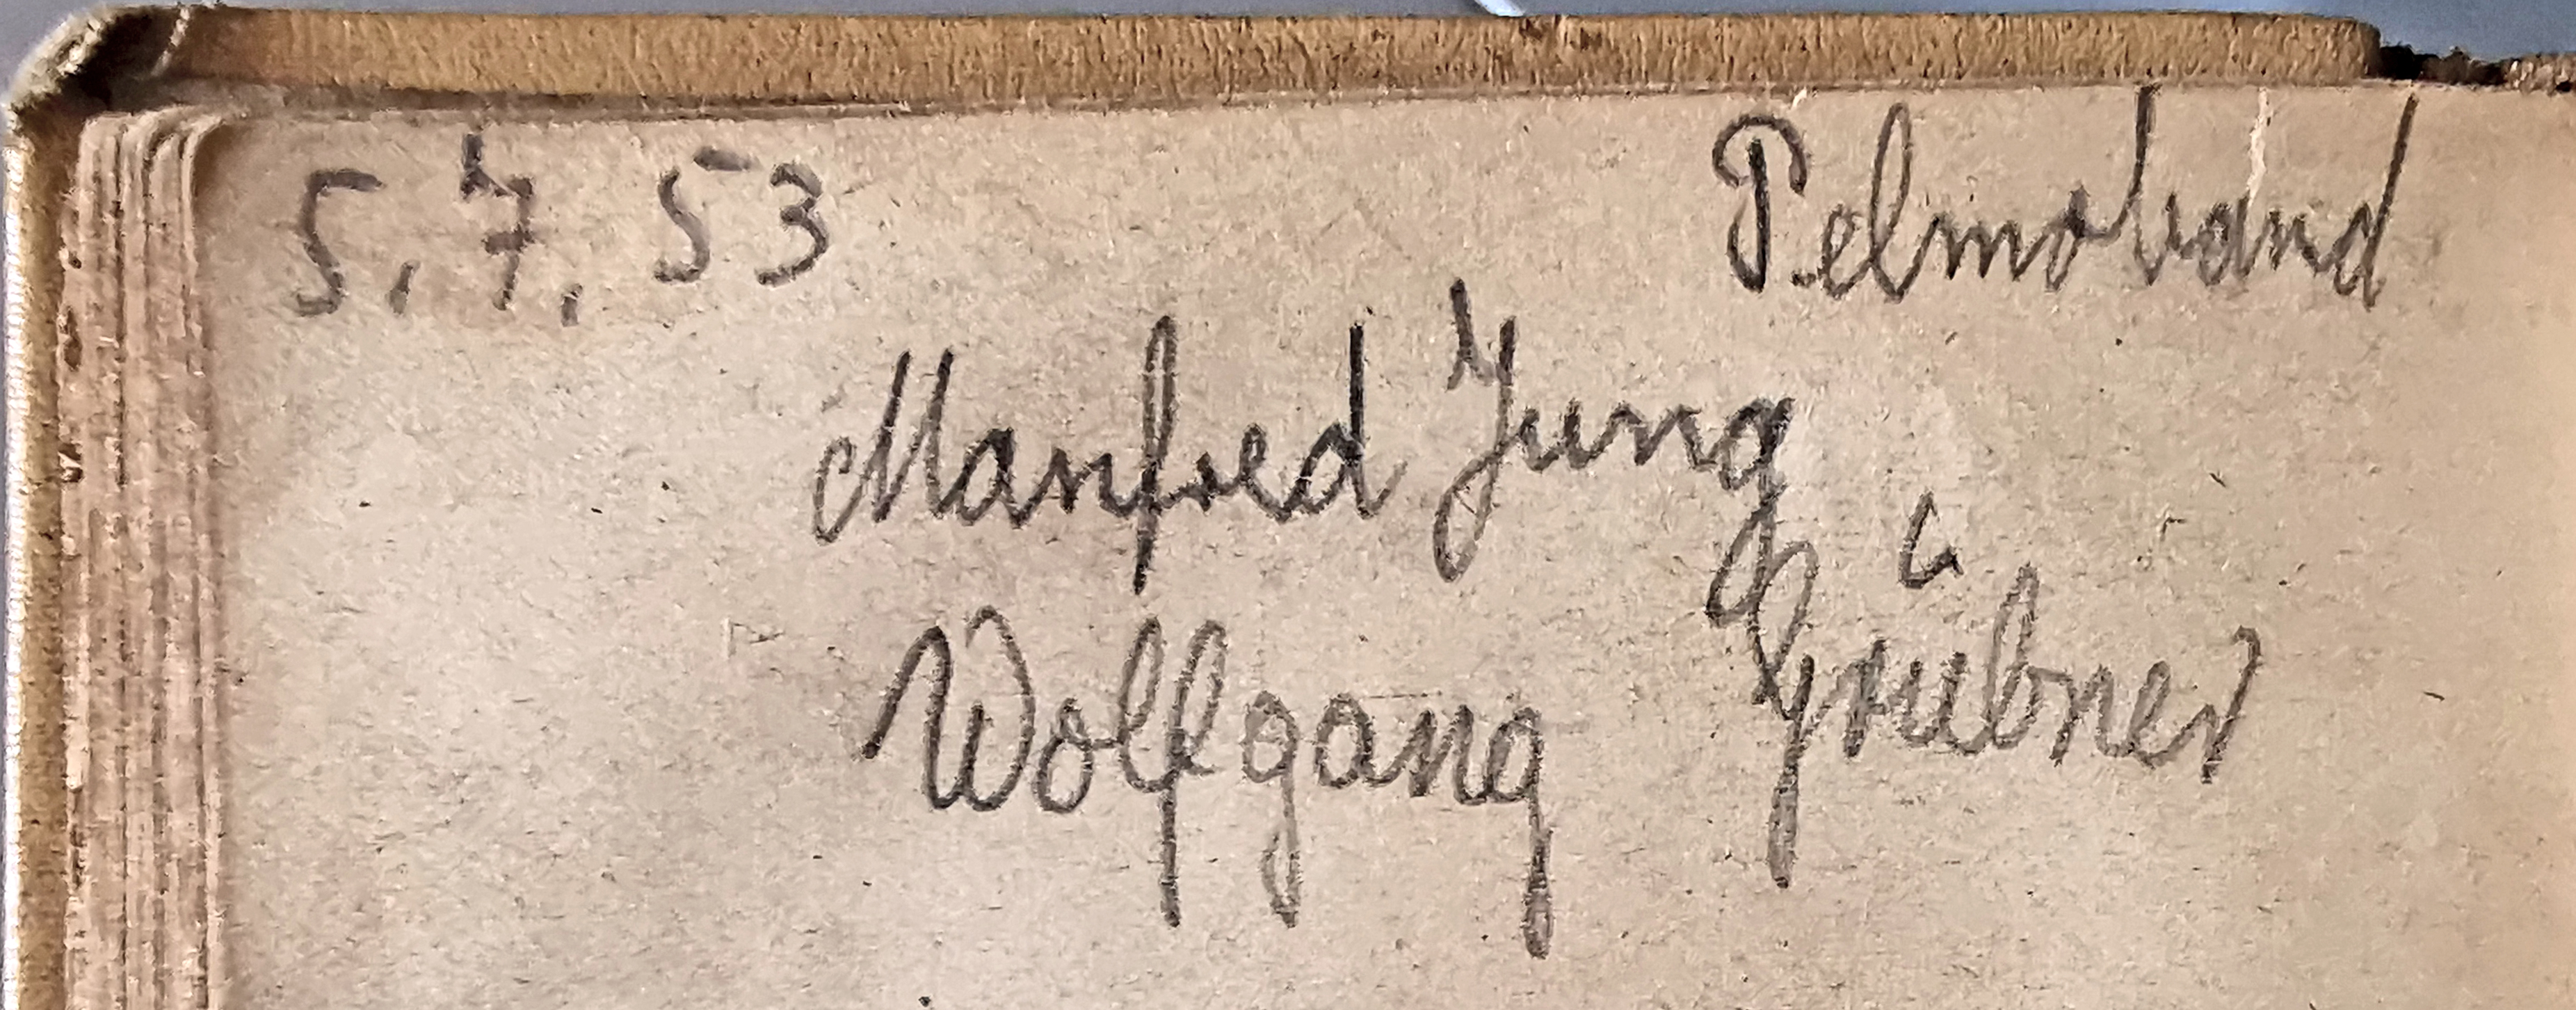 5.7.53
Manfred Jung
Wolfgang Grübner